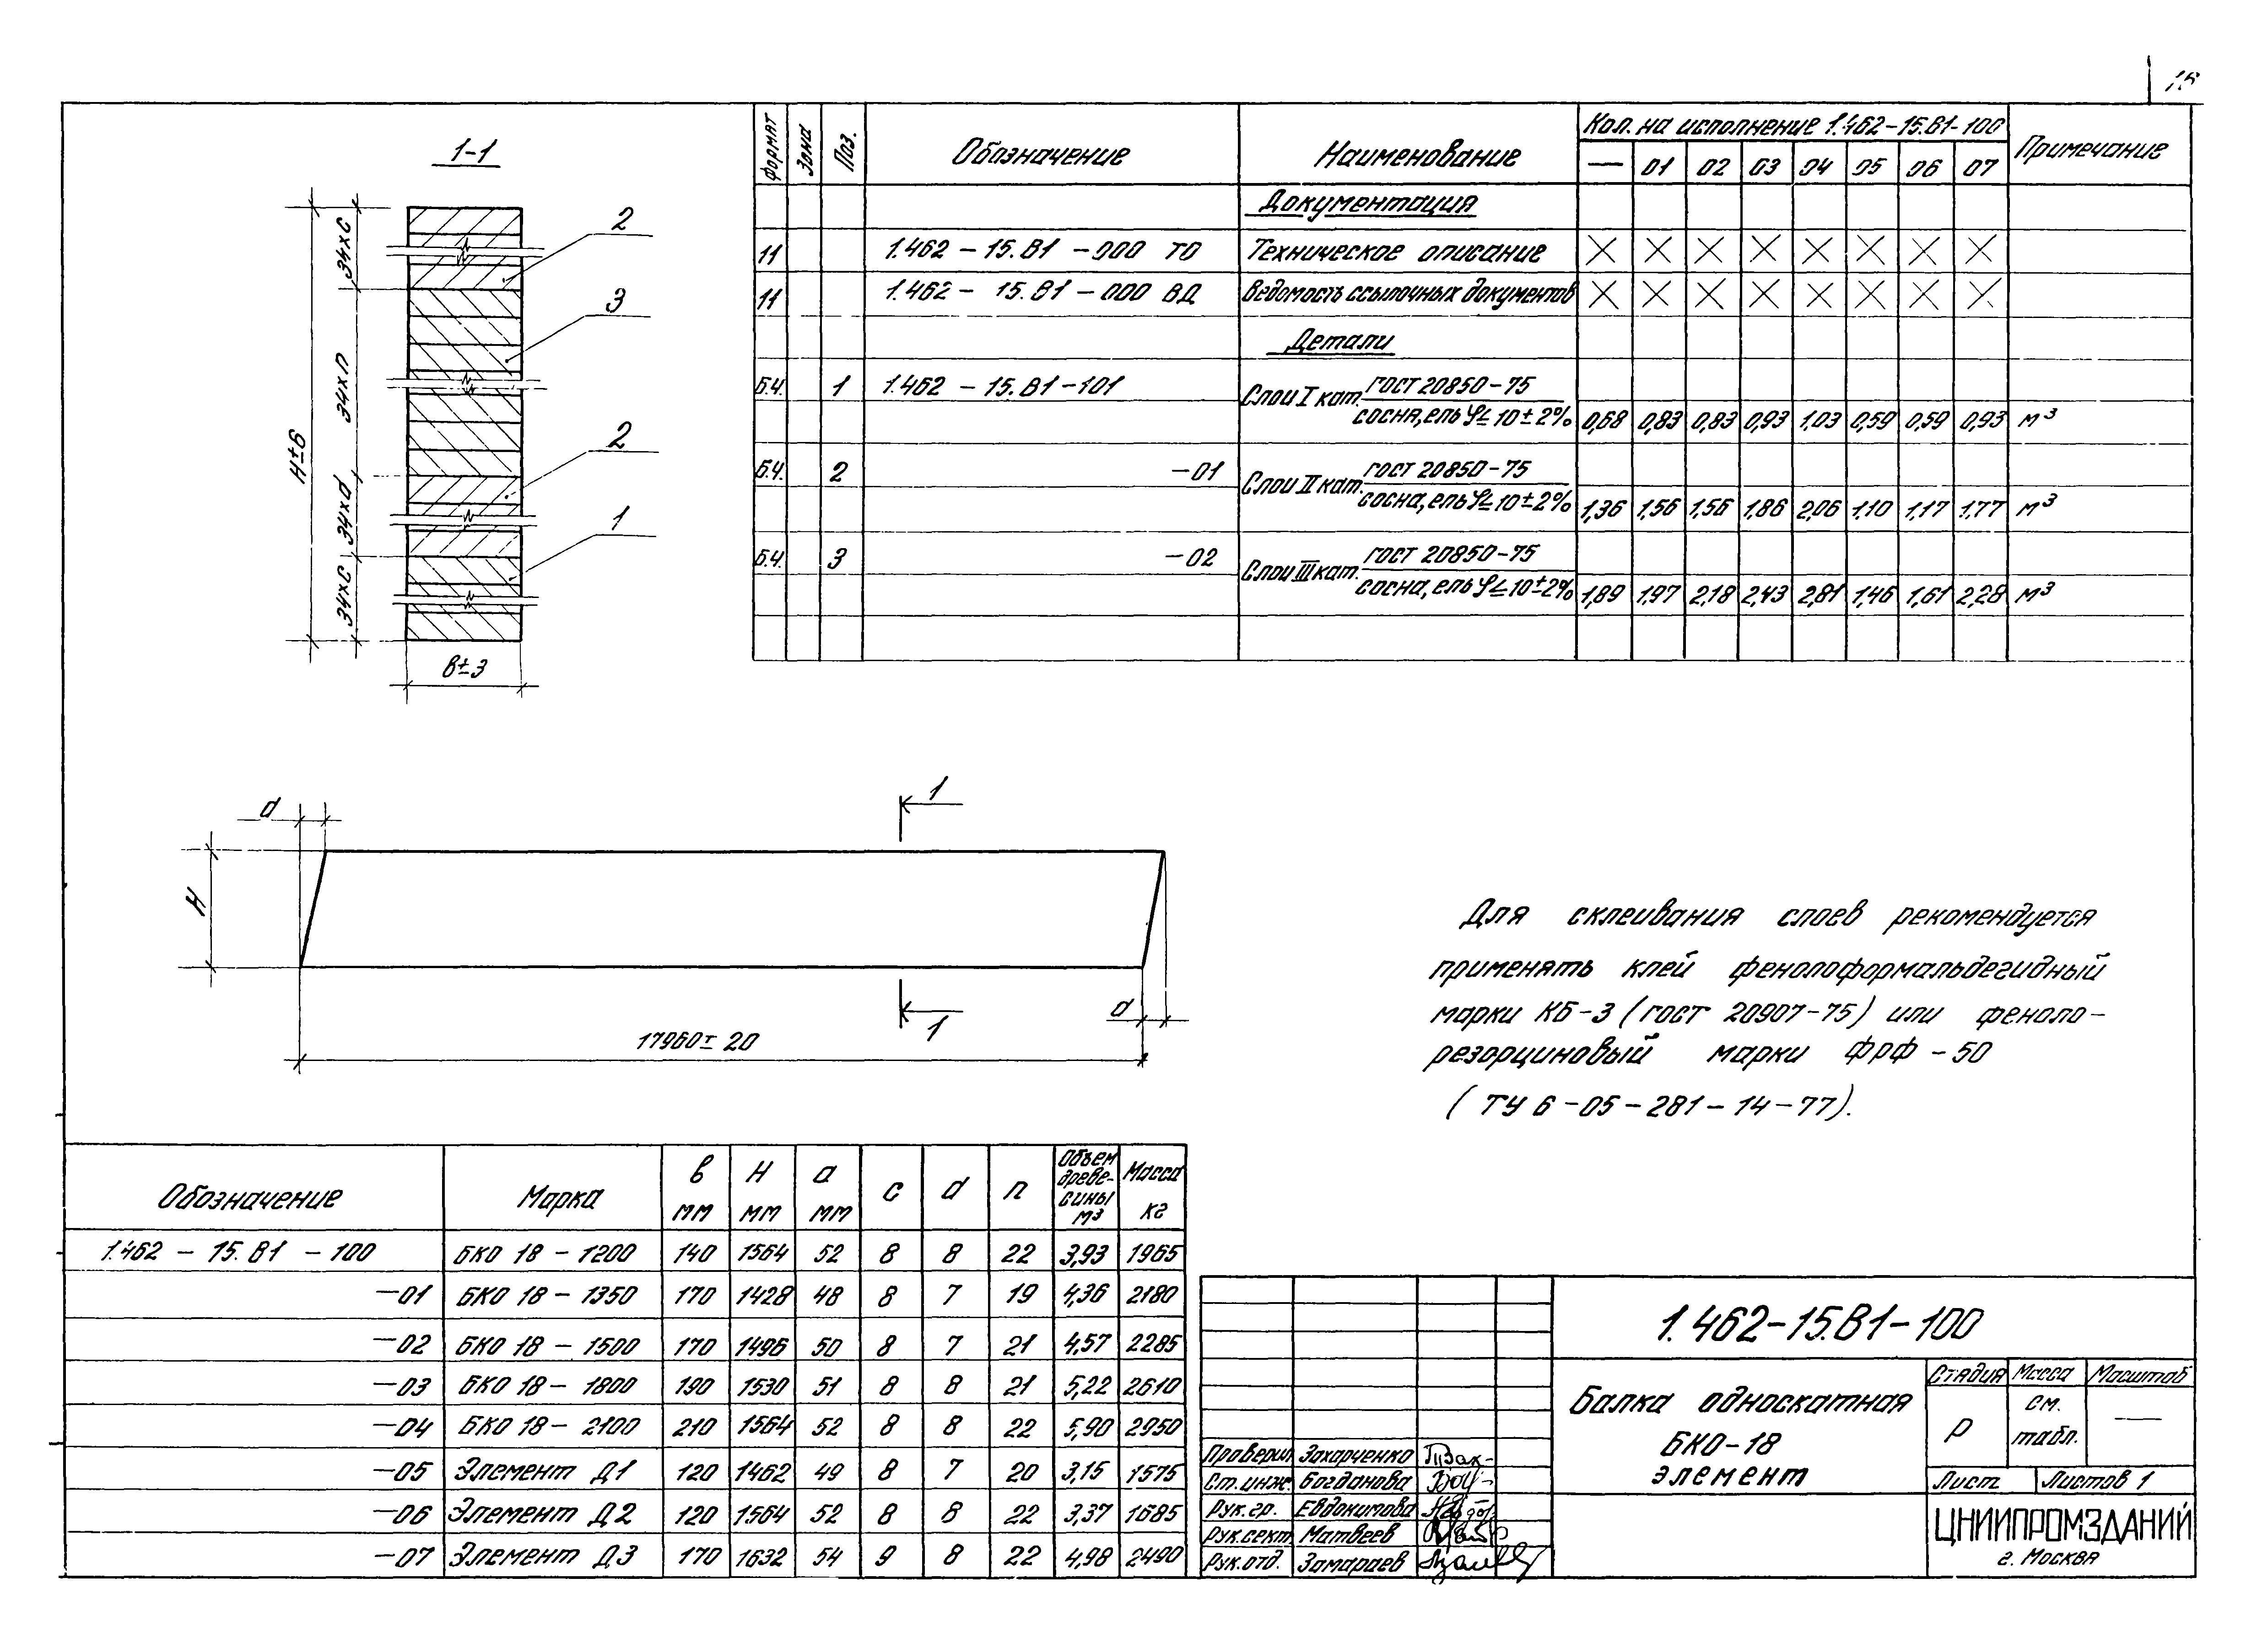 1-1
34×С
34×n
34×d
34×С
Н±6
в±3
2
3
2
1
Формат Зона Поз. Обозначение Наименование Кол. на исполнение 1.462-15.В1-100 Примечание
— 01 02 03 04 05 06 07
Документация
11 1.462 – 15.В1 – 000 ТО Техническое описание
11 1.462 – 15.В1 – 000 ВД Ведомость ссылочных документов
Детали
Б.Ч. 1 1.462 – 15.В1 – 101 Слои I кат. ГОСТ 20850-75
сосна, ель φ≤10±2% 0,68 0,83 0,83 0,93 1,03 0,59 0,59 0,93 м³
Б.Ч. 2 –01 Слои II кат. ГОСТ 20850-75
сосна, ель φ≤10±2% 1,36 1,56 1,56 1,86 2,06 1,10 1,17 1,77 м³
Б.Ч. 3 –02 Слои III кат. ГОСТ 20850-75
сосна, ель φ≤10±2% 1,89 1,97 2,18 2,43 2,81 1,46 1,61 2,28 м³
d
1
Н
1
d
17960±20
Для склеивания слоев рекомендуется
применять клей фенолоформальдегидный
марки КБ-3 (ГОСТ 20907-75) или феноло-
резорциновый марки ФРФ-50
(ТУ 6-05-281-14-77).
Обозначение Марка в мм Н мм а мм с d n Объем древе-сины м³ Масса кг
1.462 – 15.В1 – 100 БКО 18 – 1200 140 1564 52 8 8 22 3,93 1965
–01 БКО 18 – 1350 170 1428 48 8 7 19 4,36 2180
–02 БКО 18 – 1500 170 1496 50 8 7 21 4,57 2285
–03 БКО 18 – 1800 190 1530 51 8 8 21 5,22 2610
–04 БКО 18 – 2100 210 1564 52 8 8 22 5,90 2950
–05 Элемент Д1 120 1462 49 8 7 20 3,15 1575
–06 Элемент Д2 120 1564 52 8 8 22 3,37 1685
–07 Элемент Д3 170 1632 54 9 8 22 4,98 2490
1.462-15.В1-100
Балка односкатная
БКО-18
элемент
Стадия Масса Масштаб
Р см. табл. —
Лист Листов 1
Проверил Захарченко
Ст. инж. Богданова
Рук. гр. Евдокимова
Рук. сект. Матвеев
Рук. отд. Замараев
ЦНИИПРОМЗДАНИЙ
г. Москва